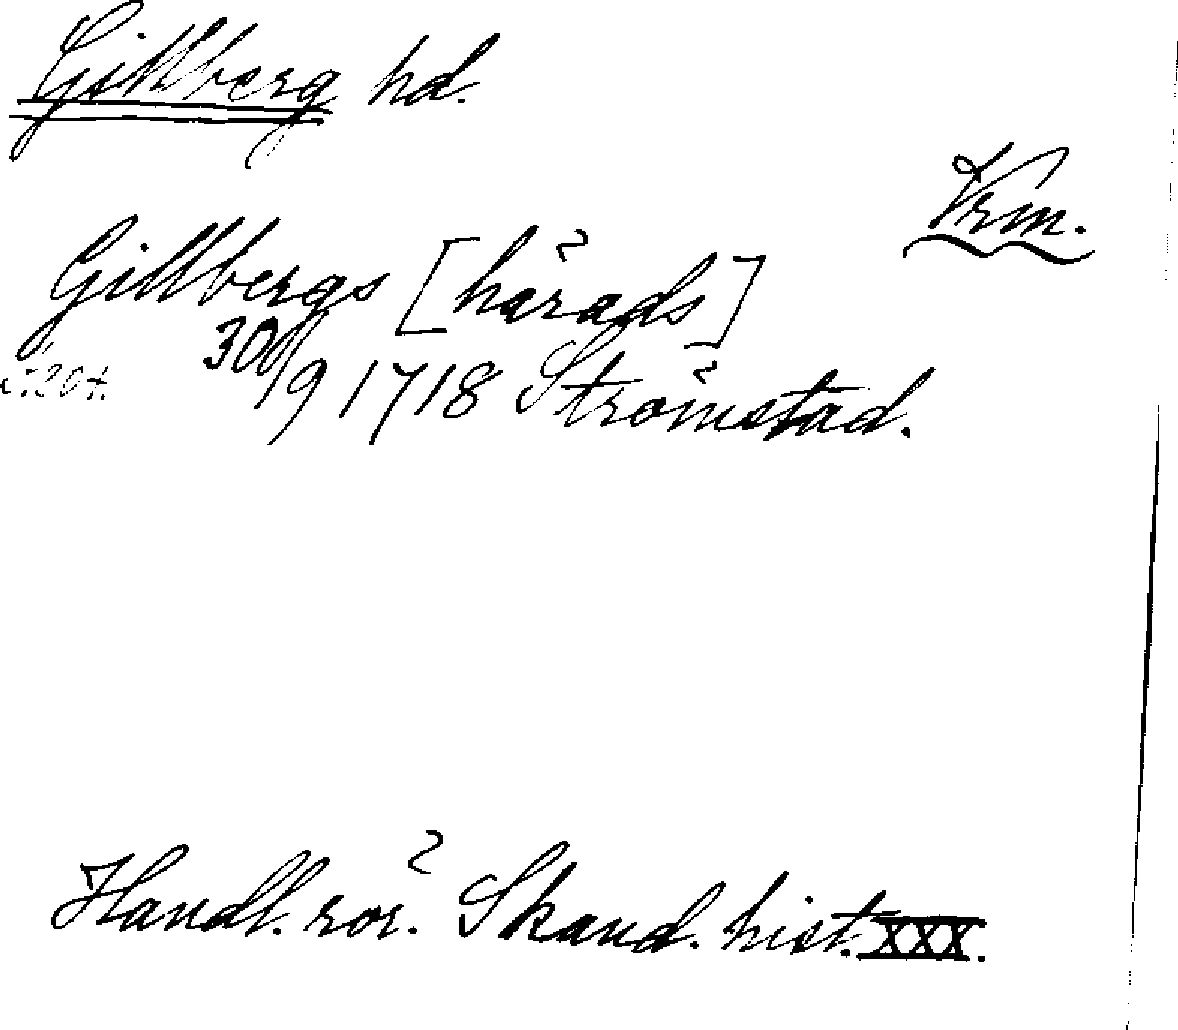 Gillberg hd.
Vrm.
Gillbergs [härads]
30/9 1718 Strömstad.
Handl. rör. Skand. hist. XXX.